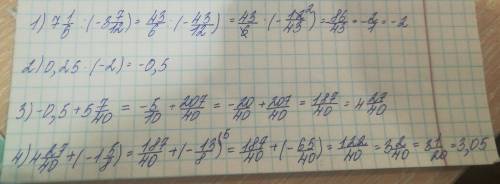 1) 7 1/6 : (-3 7/12) = 43/6 : (-43/12) = 43/6 · (-12/43) = 86/43 = -2/1 = -2
2) 0,25 · (-2) = -0,5
3) -0,5 + 5 7/40 = -5/10 + 207/40 = -20/40 + 207/40 = 187/40 = 4 27/40
4) 4 27/40 + (-1 5/8) = 187/40 + (-13/8) = 187/40 + (-65/40) = 122/40 = 3 2/40 = 3 1/20 = 3,05